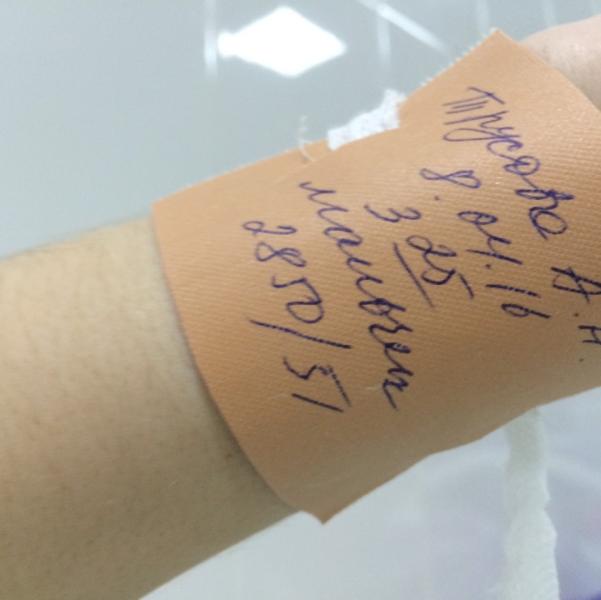 Трусова А.Н.
8.04.16
3 25
мальчик
2850/51